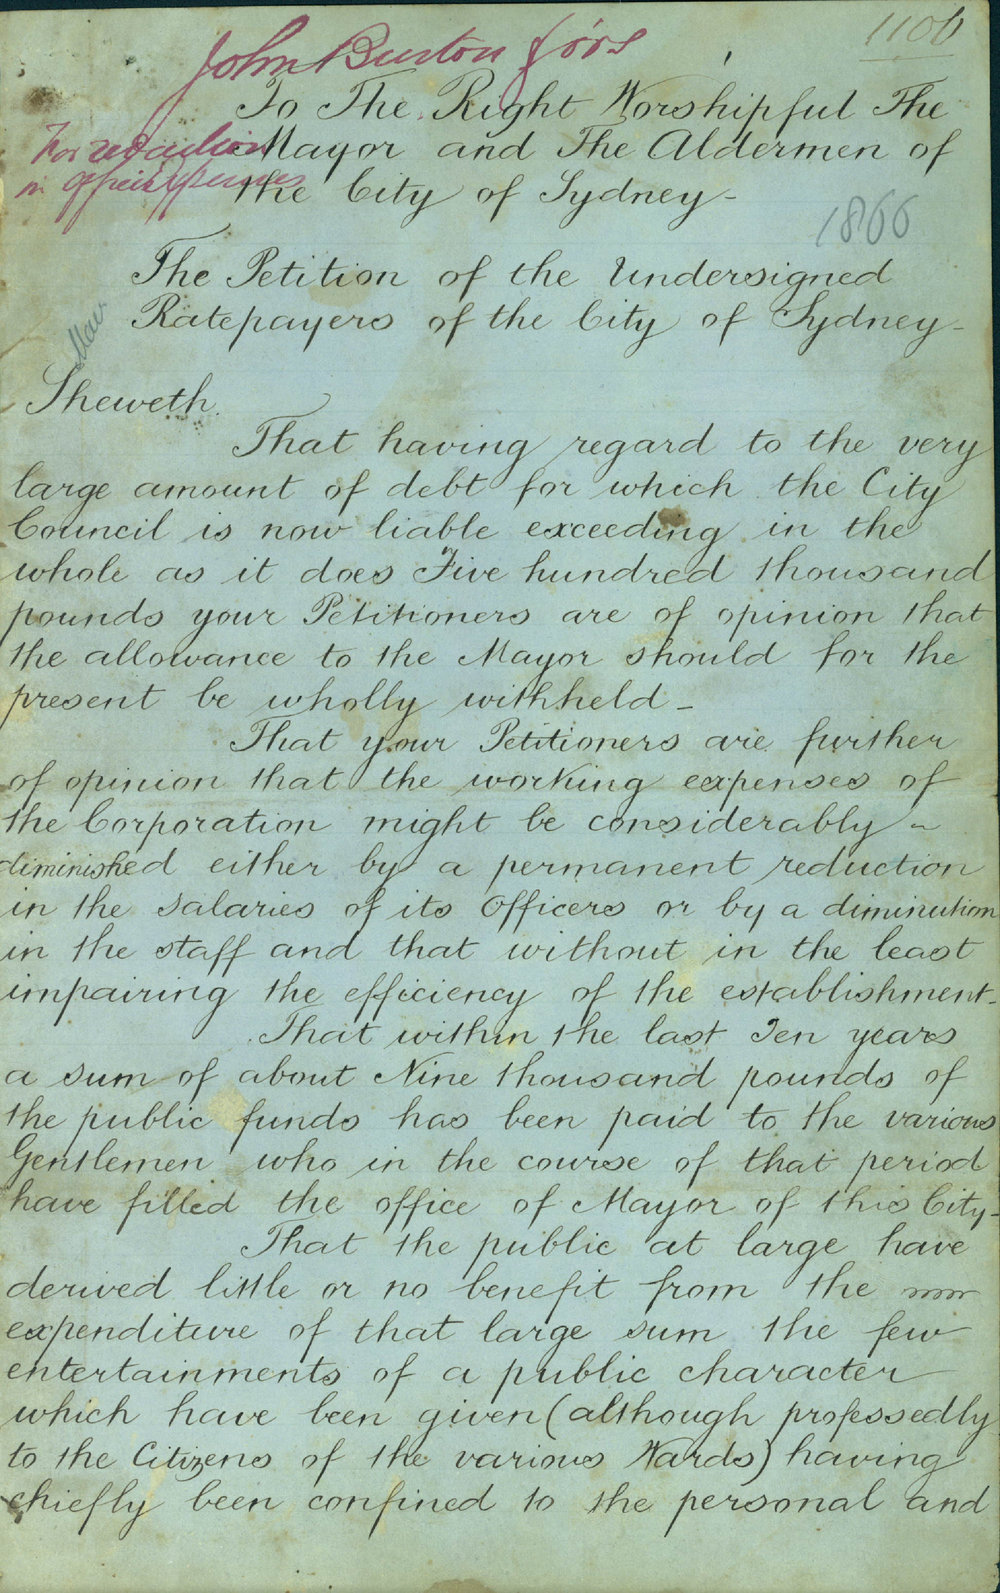 1106
John Burton & ors
To The Right Worshipful The
For reduction
Mayor and The Aldermen of
in Office expenses
the City of Sydney -
1866
The Petition of the Undersigned
Ratepayers of the City of Sydney -
Sheweth.
That having regard to the very
large amount of debt for which the City
Council is now liable exceeding in the
whole as it does Five hundred thousand
pounds your Petitioners are of opinion that
the allowance to the Mayor should for the
present be wholly withheld -
That your Petitioners are further
of opinion that the working expenses of
the Corporation might be considerably ~
diminished either by a permanent reduction
in the salaries of its Officers or by a diminution
in the staff and that without in the least
impairing the efficiency of the establishment -
That within the last Ten years
a sum of about Nine thousand pounds of
the public funds has been paid to the various
Gentlemen who in the course of that period
have filled the office of Mayor of this City -
That the public at large have
derived little or no benefit from the
expenditure of that large sum the few
entertainments of a public character
which have been given (although professedly
to the Citizens of the various Wards) having
chiefly been confined to the personal and